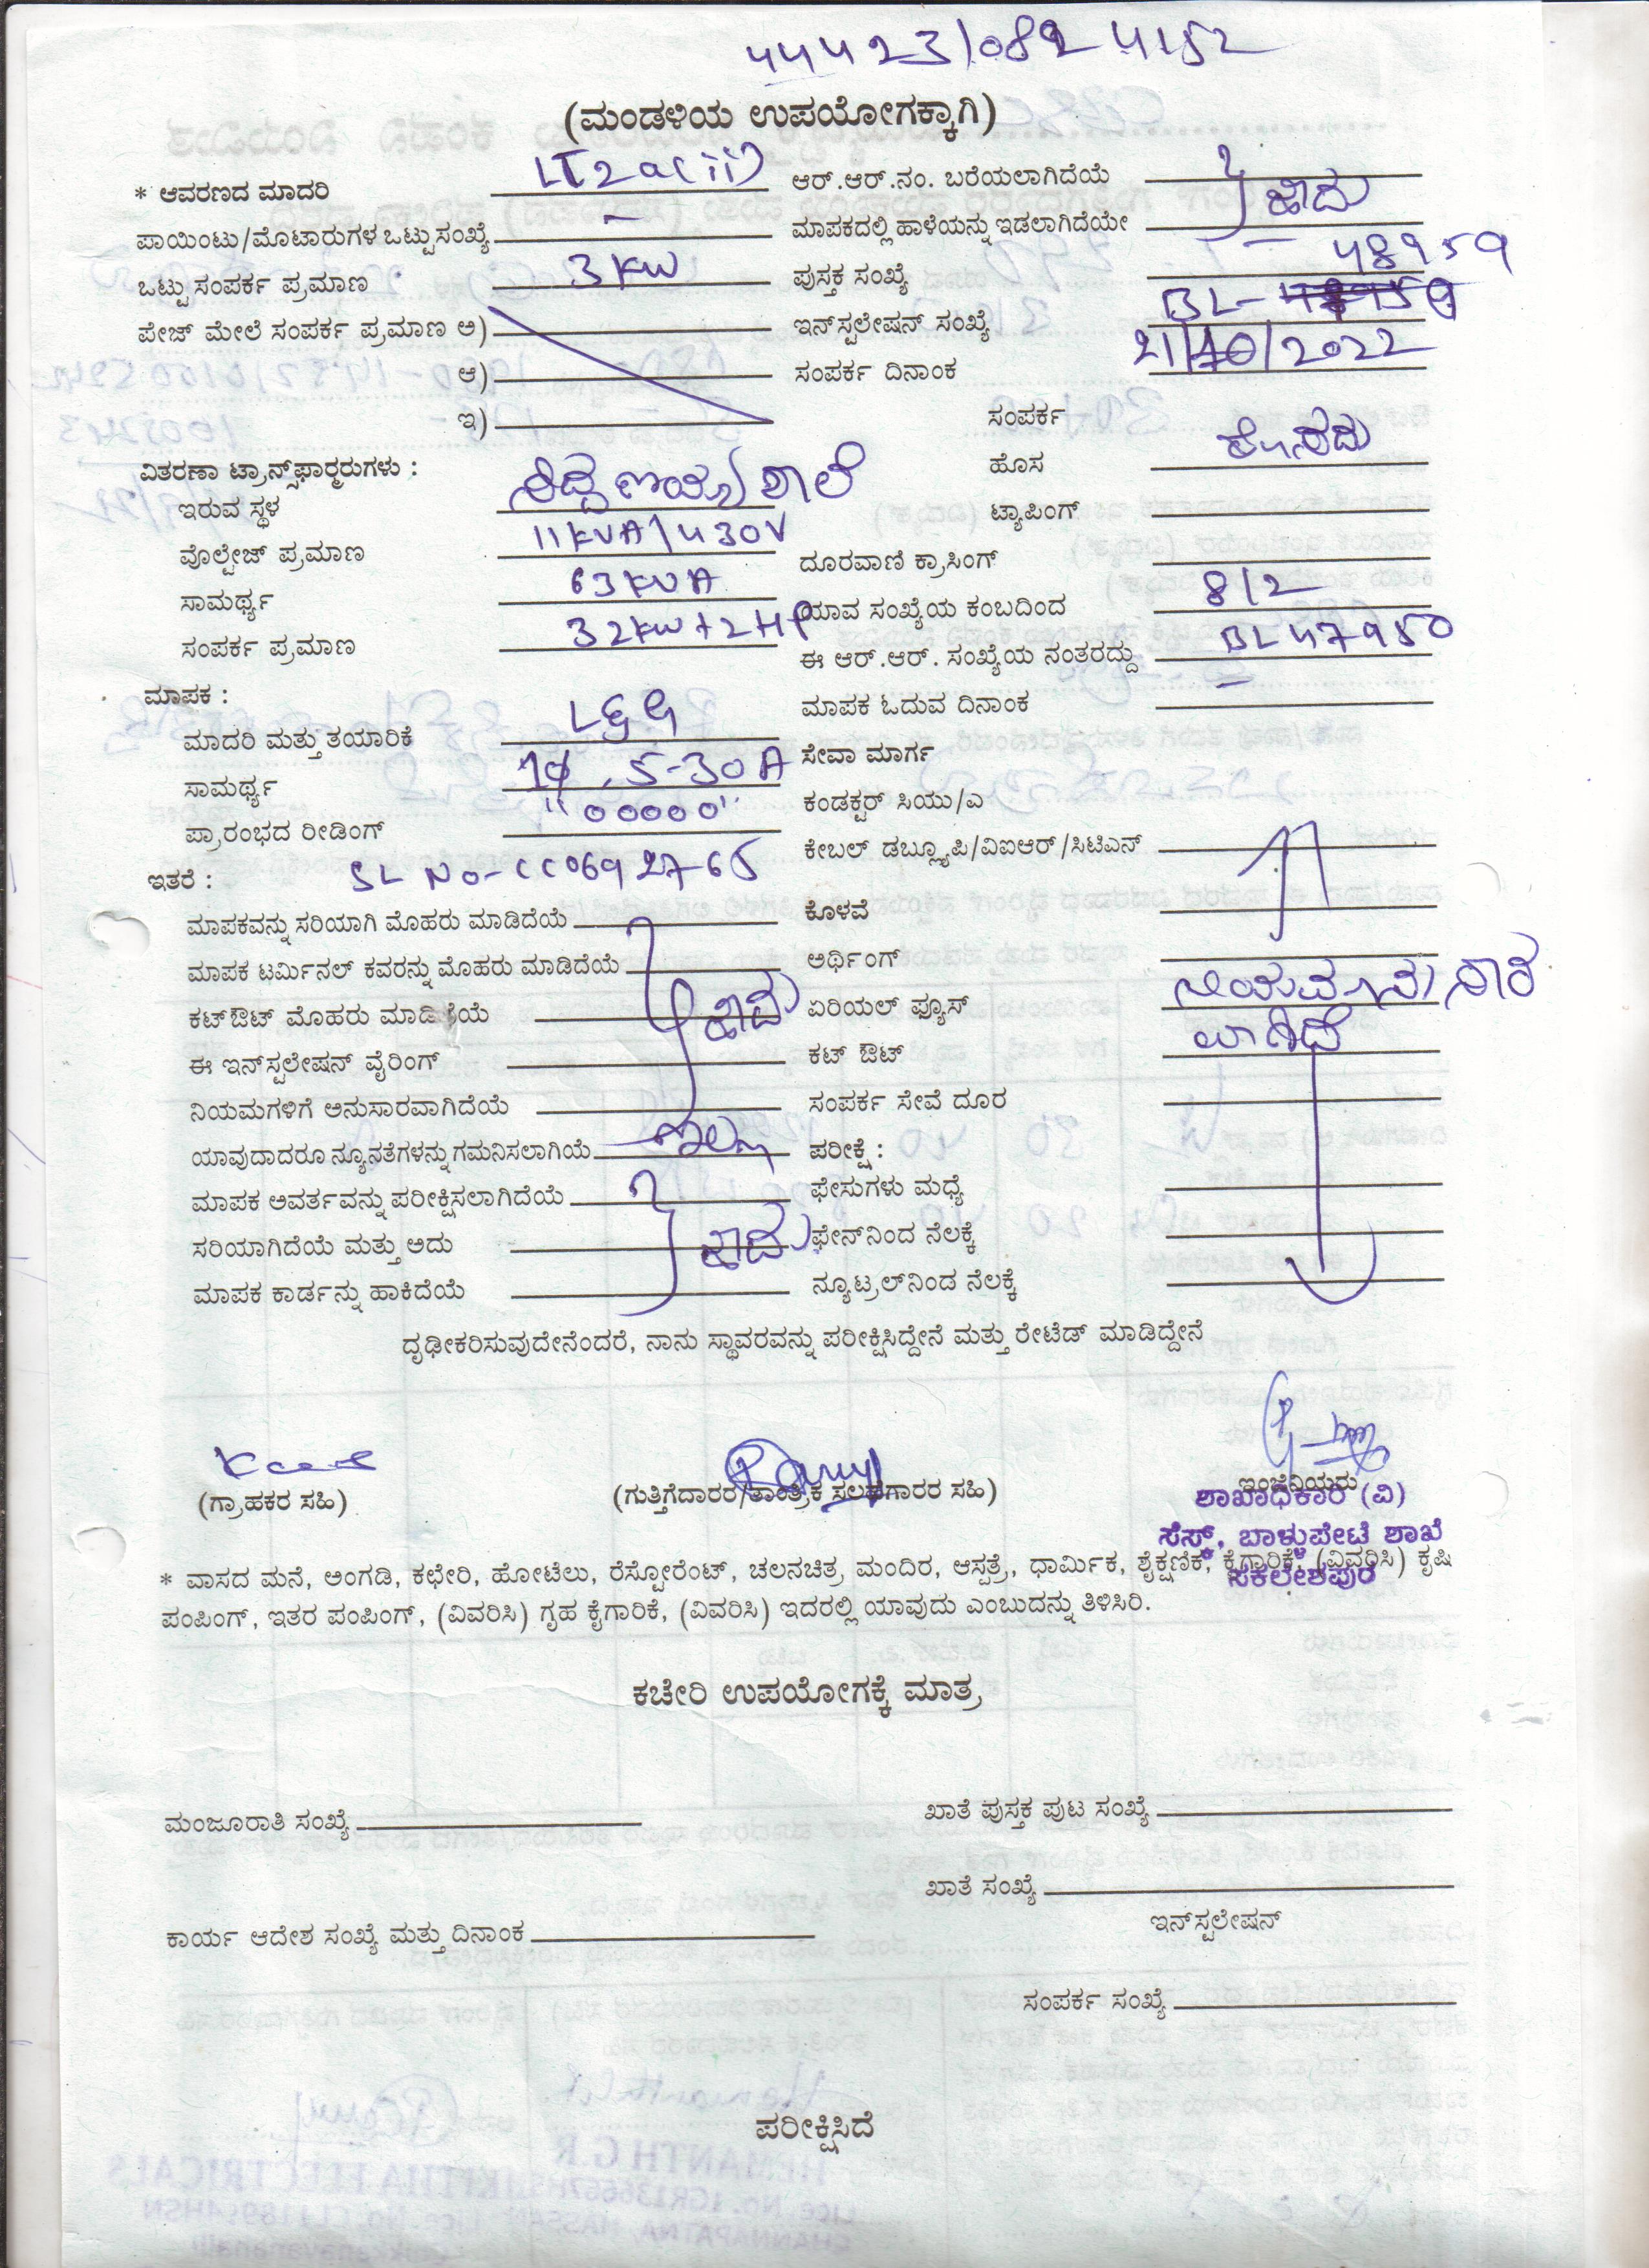 44423/0824152
(ಮಂಡಳಿಯ ಉಪಯೋಗಕ್ಕಾಗಿ)
* ಆವರಣದ ಮಾದರಿ LT2a(ii) ಆರ್.ಆರ್.ನಂ. ಬರೆಯಲಾಗಿದೆಯೆ
ಪಾಯಿಂಟು/ಮೊಟಾರುಗಳ ಒಟ್ಟು ಸಂಖ್ಯೆ - ಮಾಪಕದಲ್ಲಿ ಹಾಳೆಯನ್ನು ಇಡಲಾಗಿದೆಯೇ ಹೌದು
ಒಟ್ಟು ಸಂಪರ್ಕ ಪ್ರಮಾಣ 3 KW ಪುಸ್ತಕ ಸಂಖ್ಯೆ 48959
ಪೇಜ್ ಮೇಲೆ ಸಂಪರ್ಕ ಪ್ರಮಾಣ ಅ) ಇನ್‌ಸ್ಟಲೇಷನ್ ಸಂಖ್ಯೆ BL-
ಆ) ಸಂಪರ್ಕ ದಿನಾಂಕ 21/10/2022
ಇ) ಸಂಪರ್ಕ
ವಿತರಣಾ ಟ್ರಾನ್ಸ್‌ಫಾರ್‍ಮರುಗಳು : ಹೊಸ ಹೊಸದು
ಇರುವ ಸ್ಥಳ ಸಿದ್ದಣ್ಣಯ್ಯ ಶಾಲೆ ಟ್ಯಾಪಿಂಗ್
ವೊಲ್ಟೇಜ್ ಪ್ರಮಾಣ 11KVA/430V ದೂರವಾಣಿ ಕ್ರಾಸಿಂಗ್
ಸಾಮರ್ಥ್ಯ 63KVA ಯಾವ ಸಂಖ್ಯೆಯ ಕಂಬದಿಂದ 8/2
ಸಂಪರ್ಕ ಪ್ರಮಾಣ 32KW+2HP ಈ ಆರ್.ಆರ್. ಸಂಖ್ಯೆಯ ನಂತರದ್ದು BL47950
ಮಾಪಕ : ಮಾಪಕ ಓದುವ ದಿನಾಂಕ -
ಮಾದರಿ ಮತ್ತು ತಯಾರಿಕೆ L&G ಸೇವಾ ಮಾರ್ಗ
ಸಾಮರ್ಥ್ಯ 1φ, 5-30A ಕಂಡಕ್ಟರ್ ಸಿಯು/ಎ
ಪ್ರಾರಂಭದ ರೀಡಿಂಗ್ "00000" ಕೇಬಲ್ ಡಬ್ಲ್ಯೂಪಿ/ವಿಐಆರ್/ಸಿಟಿಎಸ್
ಇತರೆ : SL No-CC0692765
ಮಾಪಕವನ್ನು ಸರಿಯಾಗಿ ಮೊಹರು ಮಾಡಿದೆಯೆ ಕೊಳವೆ
ಮಾಪಕ ಟರ್ಮಿನಲ್ ಕವರನ್ನು ಮೊಹರು ಮಾಡಿದೆಯೆ ಅರ್ಥಿಂಗ್
ಕಟ್‌ಔಟ್ ಮೊಹರು ಮಾಡಿದೆಯೆ ಹೌದು ಏರಿಯಲ್ ಫ್ಯೂಸ್ ನಿಯಮಾನುಸಾರ
ಈ ಇನ್‌ಸ್ಟಲೇಷನ್ ವೈರಿಂಗ್ ಕಟ್ ಔಟ್ ವಾಗಿದೆ
ನಿಯಮಗಳಿಗೆ ಅನುಸಾರವಾಗಿದೆಯೆ ಸಂಪರ್ಕ ಸೇವೆ ದೂರ
ಯಾವುದಾದರೂ ನ್ಯೂನತೆಗಳನ್ನು ಗಮನಿಸಲಾಗಿಯೆ ಇಲ್ಲ ಪರೀಕ್ಷೆ :
ಮಾಪಕ ಅವರ್ತವನ್ನು ಪರೀಕ್ಷಿಸಲಾಗಿದೆಯೆ ಫೇಸುಗಳು ಮಧ್ಯೆ
ಸರಿಯಾಗಿದೆಯೆ ಮತ್ತು ಅದು ಹೌದು ಫೇಸ್‌ನಿಂದ ನೆಲಕ್ಕೆ
ಮಾಪಕ ಕಾರ್ಡನ್ನು ಹಾಕಿದೆಯೆ ನ್ಯೂಟ್ರಲ್‌ನಿಂದ ನೆಲಕ್ಕೆ
ದೃಢೀಕರಿಸುವುದೇನೆಂದರೆ, ನಾನು ಸ್ಥಾವರವನ್ನು ಪರೀಕ್ಷಿಸಿದ್ದೇನೆ ಮತ್ತು ರೇಟೆಡ್ ಮಾಡಿದ್ದೇನೆ
(ಗ್ರಾಹಕರ ಸಹಿ) (ಗುತ್ತಿಗೆದಾರರ/ತಾಂತ್ರಿಕ ಸಲಹೆಗಾರರ ಸಹಿ) ಇಂಜಿನಿಯರು
ಶಾಖಾಧಿಕಾರಿ (ವಿ)
ಸೆಸ್ಕ್, ಬಾಳ್ಳುಪೇಟೆ ಶಾಖೆ
ಸಕಲೇಶಪುರ
* ವಾಸದ ಮನೆ, ಅಂಗಡಿ, ಕಛೇರಿ, ಹೋಟೆಲು, ರೆಸ್ಟೋರೆಂಟ್, ಚಲನಚಿತ್ರ ಮಂದಿರ, ಆಸ್ಪತ್ರೆ, ಧಾರ್ಮಿಕ, ಶೈಕ್ಷಣಿಕ, ಕೈಗಾರಿಕೆ, (ವಿವರಿಸಿ) ಕೃಷಿ
ಪಂಪಿಂಗ್, ಇತರ ಪಂಪಿಂಗ್, (ವಿವರಿಸಿ) ಗೃಹ ಕೈಗಾರಿಕೆ, (ವಿವರಿಸಿ) ಇದರಲ್ಲಿ ಯಾವುದು ಎಂಬುದನ್ನು ತಿಳಿಸಿರಿ.
ಕಚೇರಿ ಉಪಯೋಗಕ್ಕೆ ಮಾತ್ರ
ಮಂಜೂರಾತಿ ಸಂಖ್ಯೆ ಖಾತೆ ಪುಸ್ತಕ ಪುಟ ಸಂಖ್ಯೆ
ಖಾತೆ ಸಂಖ್ಯೆ
ಇನ್‌ಸ್ಟಲೇಷನ್
ಕಾರ್ಯ ಆದೇಶ ಸಂಖ್ಯೆ ಮತ್ತು ದಿನಾಂಕ
ಸಂಪರ್ಕ ಸಂಖ್ಯೆ
ಪರೀಕ್ಷಿಸಿದೆ